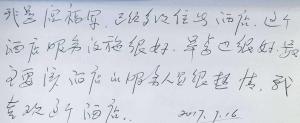 我是温福军，已经多次住此酒店。这个
酒店服务设施很好，早餐也很好，最
主要该酒店的服务人员很热情，我
喜欢这个酒店。 2017.7.16